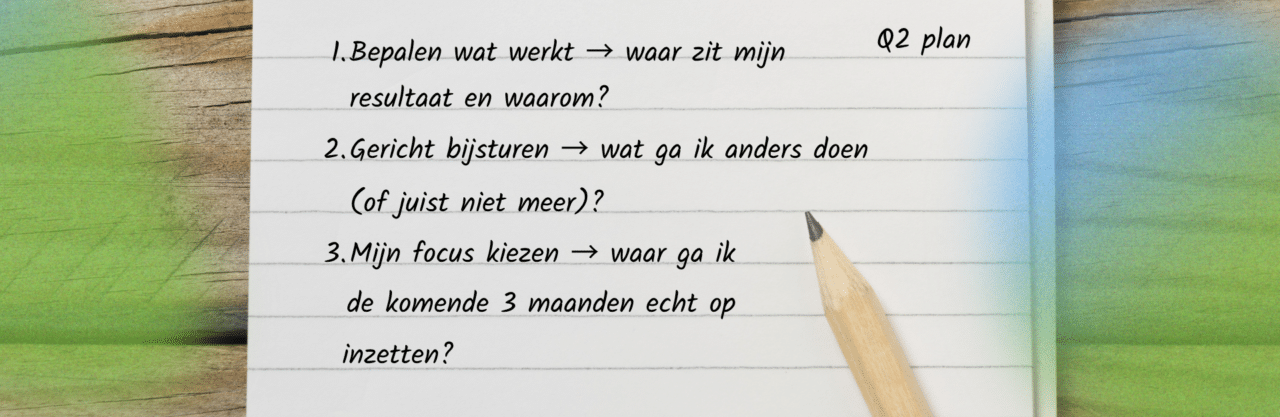 Q2 plan
1. Bepalen wat werkt → waar zit mijn
resultaat en waarom?
2. Gericht bijsturen → wat ga ik anders doen
(of juist niet meer)?
3. Mijn focus kiezen → waar ga ik
de komende 3 maanden echt op
inzetten?